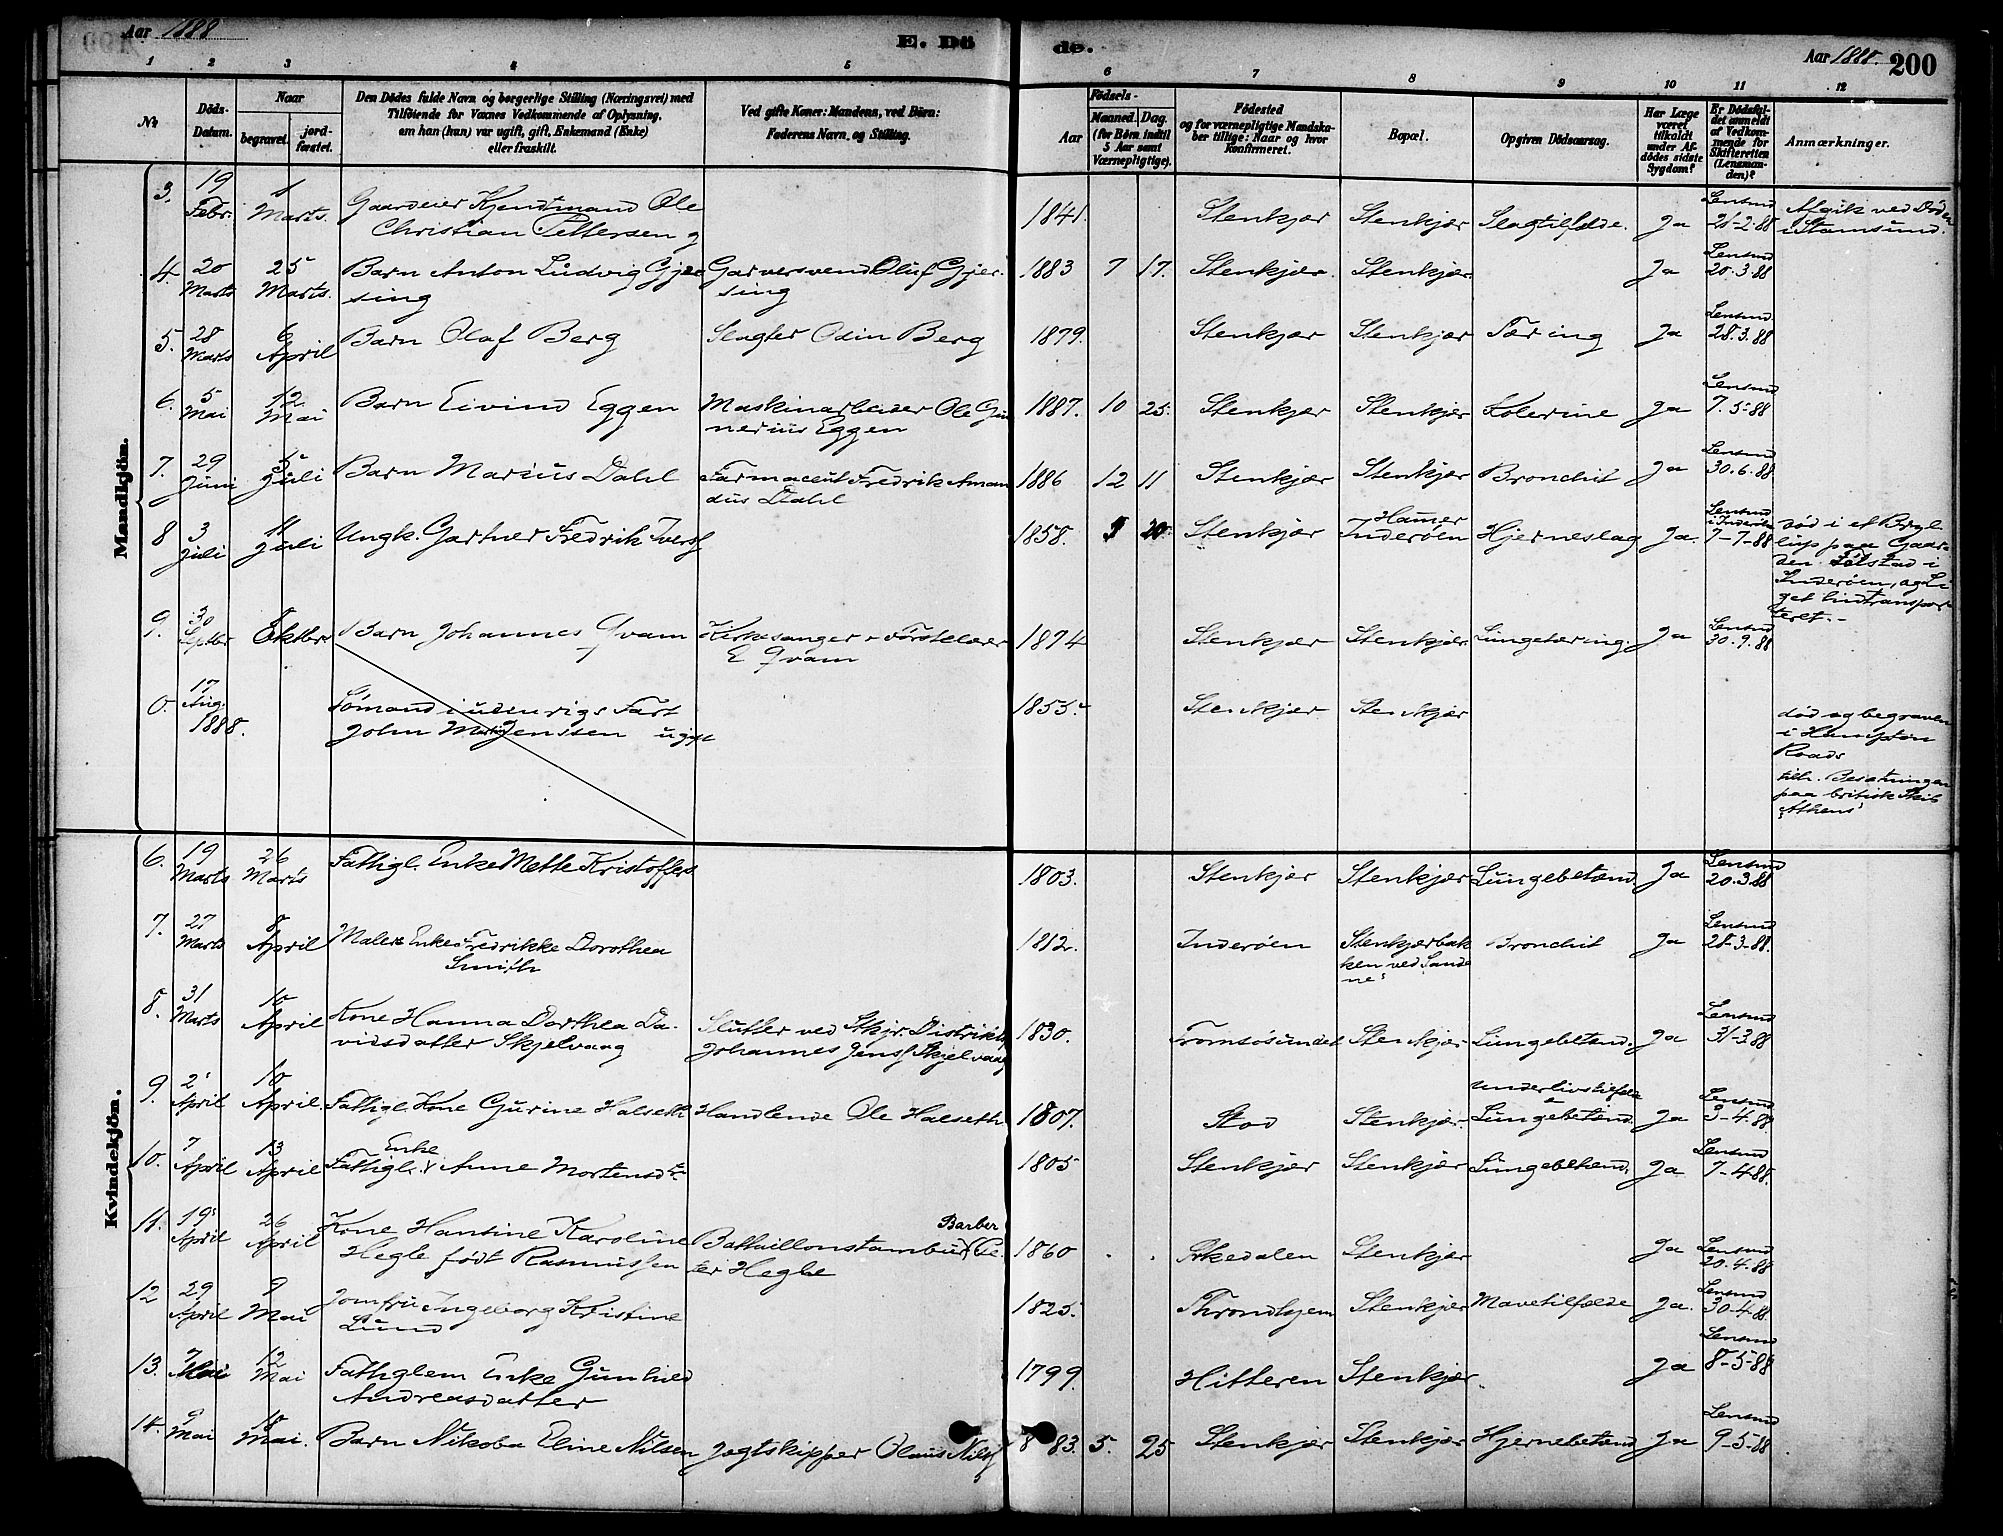 Aar 1888
E. Dö
de.
Aar 1888.
200
1 2 3 4 5 6 7 8 9 10 11 12
No
Döds-Datum.
Naar
begravet.
jord-fæstet.
Den Dödes fulde Navn og borgerlige Stilling (Næringsvei) med
Tilföiende for Voxnes Vedkommende af Oplysning,
om han (hun) var ugift, gift, Enkemand (Enke)
eller fraskilt.
Ved gifte Koner: Mandens, ved Börn:
Faderens Navn, og Stilling.
Födsels-
Aar
Maaned. Dag.
(for Börn indtil
5 Aar samt
Værnepligtige).
Födested
og for værnepligtige Mandska-
ber tillige: Naar og hvor
konfirmeret.
Bopæl.
Opgiven Dödsaarsag.
Har Læge
været
tilkaldt
under Af-
dödes sidste
Sygdom?
Er Dödsfal-
det anmeldt
af Vedkom-
mende for
Skifteretten
(Lensman-
den)?
Anmærkninger.
Mandkjön.
3. 19 Febr. 1 Marts. Gaardeier Kjendtmand Ole
Christian Pettersen g 1841. Stenkjær Stenkjær Slagtilfælde. Ja Lensmd 21-2-88 Afgik ved Döden
i Stamsund.
4. 20 Marts 25 Marts. Barn Anton Ludvig Gjæs
sing Garversvend Oluf Gjes
sing 1883 7 17. Stenkjær. Stenkjær Ja Lensmd 20.3.88
5. 28 Marts 6 April Barn Olaf Berg Slagter Odin Berg 1879. Stenkjær Stenkjær Tæring Ja Lensmd 28.3.88
6. 5 Mai 12 Mai Barn Eivind Eggen Maskinarbeider Ole Gun
nerius Eggen 1887. 10 25. Stenkjær Stenkjær Kolerine Ja Lensmd 7.5.88
7. 29 Juni 5 Juli Barn Marius Dahl Farmaceut Fredrik Aman
dus Dahl 1886 12 11 Stenkjær Stenkjær Bronchit Ja Lensmd 30.6.88
8 3 Juli 11 Juli Ungk. Gartner Fredrik Iversf 1858. 20 Stenkjær Hamer
Inderöen Hjerneslag Ja. Lensmd i Inderöen 7-7-88 död i et Bryl
lup paa Gaar-
den Tölstad i
Inderöen, og Li
get hidtranspor
teret.-
9. 30 Septbr 8 Oktbr Barn Johannes Qvam Kirkesanger
E Qvam 1874 Stenkjær Stenkjær Lungetæring Ja Lensmd 30.9.88
0. 17 Aug. 1888. Sömand i udenrigs Fart
John Martin Jenssen ugift 1855. Stenkjær Stenkjær död og begraven
i Hampton
Roads
tilh. Besætningen
paa britisk Skib
"Athens"
Kvindekjön.
6. 19 Marts 26 Marts Fattigl. Enke Mette Kristoffers 1803. Stenkjær Stenkjær Lungebetænd. Ja Lensmd 20.3.88
7. 27 Marts 8 April Malers Enke Fredrikke Dorothea
Smith 1812. Inderöen Stenkjærbak
ken ved Sande
ne Bronchit Ja Lensmd 28-3-88.
8. 31 Marts 10 April Kone Hanna Dorthea Da-
vidsdatter Skjelvaag Slutter ved Stkjr. Distriktsf
Johannes Jensf Skjelvaag 1830. Tromsösundet Stenkjær Lungebetænd. Ja Lensmd 31-3.88
9. 2 April 10 April. Fattigl Kone Gurine Halseth Handlende Ole Halseth 1807. Stod Stenkjær. Underlivstilfælde
Lungebetænd. Ja Lensmd 3-4.88.
10. 7 April 13 April Fattigl. Enke Anne Mortensdtr 1805 Stenkjær Stenkjær Lungebetænd. Ja Lensmd 7-4-88.
11. 19 April 26 April Kone Hantine Karoline
Hegle födt Rasmussen Barber
Battaillonstambur Pe
ter Hegle 1860 Orkedalen Stenkjær Ja Lensmd 20.4.88
12 29 April 9 Mai Jomfru Ingeborg Kristine
Lund 1825. Throndhjem Stenkjær Mavetilfælde Ja. Lensmd 30-4-88.
13. 7 Mai 12 Mai Fattiglem Enke Gunhild
Andreasdatter 1799. Hitteren Stenkjær. Ja Lensmd 8-5-88
14. 9 Mai 18 Mai. Barn Nikoba Eline Nilsen Jagtskipper Olaus Nilsf 83. 5. 25 Stenkjær Stenkjær Hjernebetænd Ja Lensmd 9-5-88